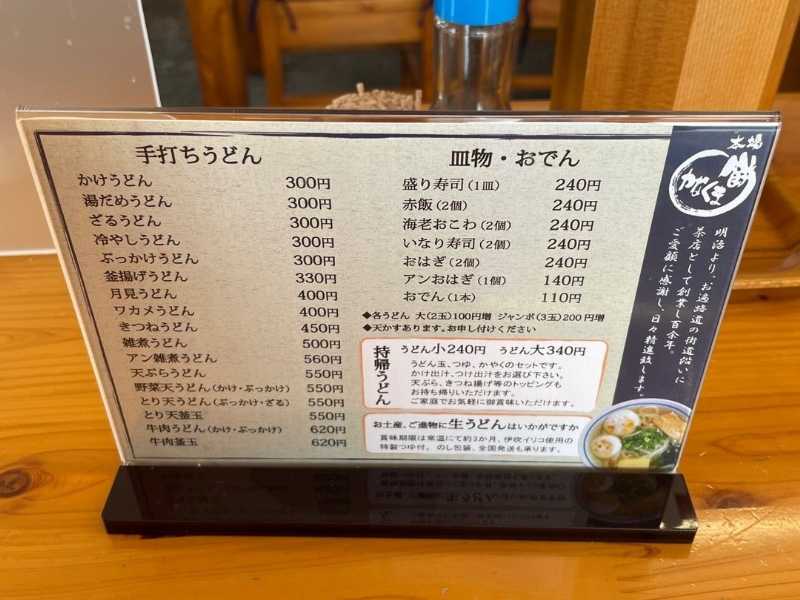 手打ちうどん
かけうどん 300円
湯だめうどん 300円
ざるうどん 300円
冷やしうどん 300円
ぶっかけうどん 300円
釜揚げうどん 330円
月見うどん 400円
ワカメうどん 400円
きつねうどん 450円
雑煮うどん 500円
アン雑煮うどん 560円
天ぷらうどん 550円
野菜天うどん(かけ・ぶっかけ) 550円
とり天うどん(ぶっかけ・ざる) 550円
とり天釜玉 550円
牛肉うどん(かけ・ぶっかけ) 620円
牛肉釜玉 620円
皿物・おでん
盛り寿司(1皿) 240円
赤飯(2個) 240円
海老おこわ(2個) 240円
いなり寿司(2個) 240円
おはぎ(2個) 240円
アンおはぎ(1個) 140円
おでん(1本) 110円
◆各うどん 大(2玉)100円増 ジャンボ(3玉)200円増
◆天かすあります。お申し付けください
持帰うどん
うどん小240円 うどん大340円
うどん玉、つゆ、かやくのセットです。
かけ出汁、つけ出汁をお選び下さい。
天ぷら、きつね揚げ等のトッピングも
お持ち帰りいただけます。
ご家庭でお気軽に御賞味いただけます。
お土産、ご進物に生うどんはいかがですか
賞味期限は常温にて約3か月、伊吹イリコ使用の
特製つゆ付。 のし包装、全国発送も承ります。
本場
かなくま
明治より、お遍路道の街道沿いに
茶店として創業し百余年。
ご愛顧に感謝し、日々精進致します。